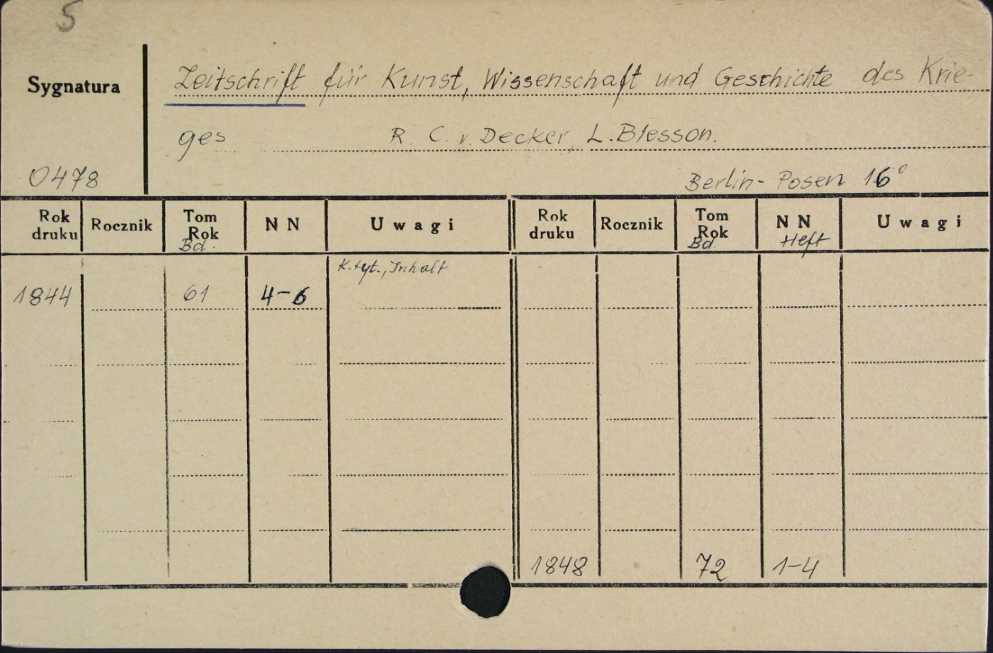 5
Sygnatura
Zeitschrift für Kunst, Wissenschaft und Geschichte des Krie-
ges R. C. v. Decker, L. Blesson.
0478 Berlin - Posen 16°
Rok druku Rocznik Tom Rok Bd. NN Uwagi Rok druku Rocznik Tom Rok Bd. NN Heft Uwagi
K. tyt., Inhalt
1844 61 4-6
1848 72 1-4